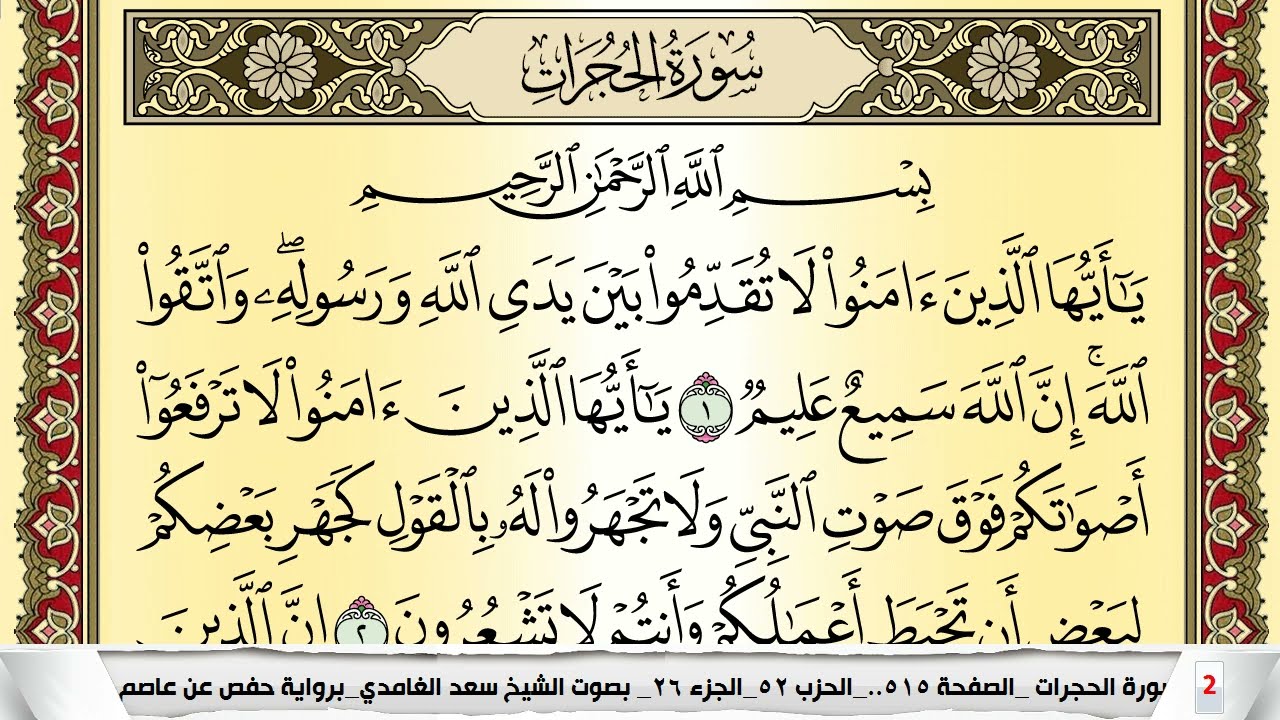 سُورَةُ الحُجُرَاتِ
بِسْمِ ٱللَّهِ ٱلرَّحْمَٰنِ ٱلرَّحِيمِ
يَٰٓأَيُّهَا ٱلَّذِينَ ءَامَنُوا۟ لَا تُقَدِّمُوا۟ بَيْنَ يَدَىِ ٱللَّهِ وَرَسُولِهِۦ ۖ وَٱتَّقُوا۟
ٱللَّهَ ۚ إِنَّ ٱللَّهَ سَمِيعٌ عَلِيمٌ ١ يَٰٓأَيُّهَا ٱلَّذِينَ ءَامَنُوا۟ لَا تَرْفَعُوٓا۟
أَصْوَٰتَكُمْ فَوْقَ صَوْتِ ٱلنَّبِىِّ وَلَا تَجْهَرُوا۟ لَهُۥ بِٱلْقَوْلِ كَجَهْرِ بَعْضِكُمْ
لِبَعْضٍ أَن تَحْبَطَ أَعْمَٰلُكُمْ وَأَنتُمْ لَا تَشْعُرُونَ ٢ إِنَّ ٱلَّذِينَ
2 سورة الحجرات _الصفحة ٥١٥.._الحزب ٥٢_الجزء ٢٦_ بصوت الشيخ سعد الغامدي_برواية حفص عن عاصم